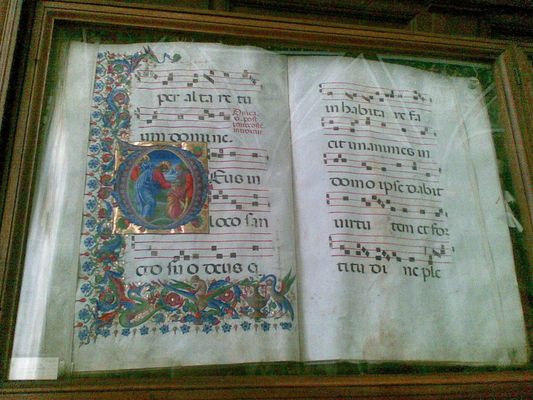 per alta re tu
um domine.
Eus in
loco san
cto su o deus q
in habita re fa
cit unanimes in
domo ipse dabit
virtu tem et for
titu di ne ple